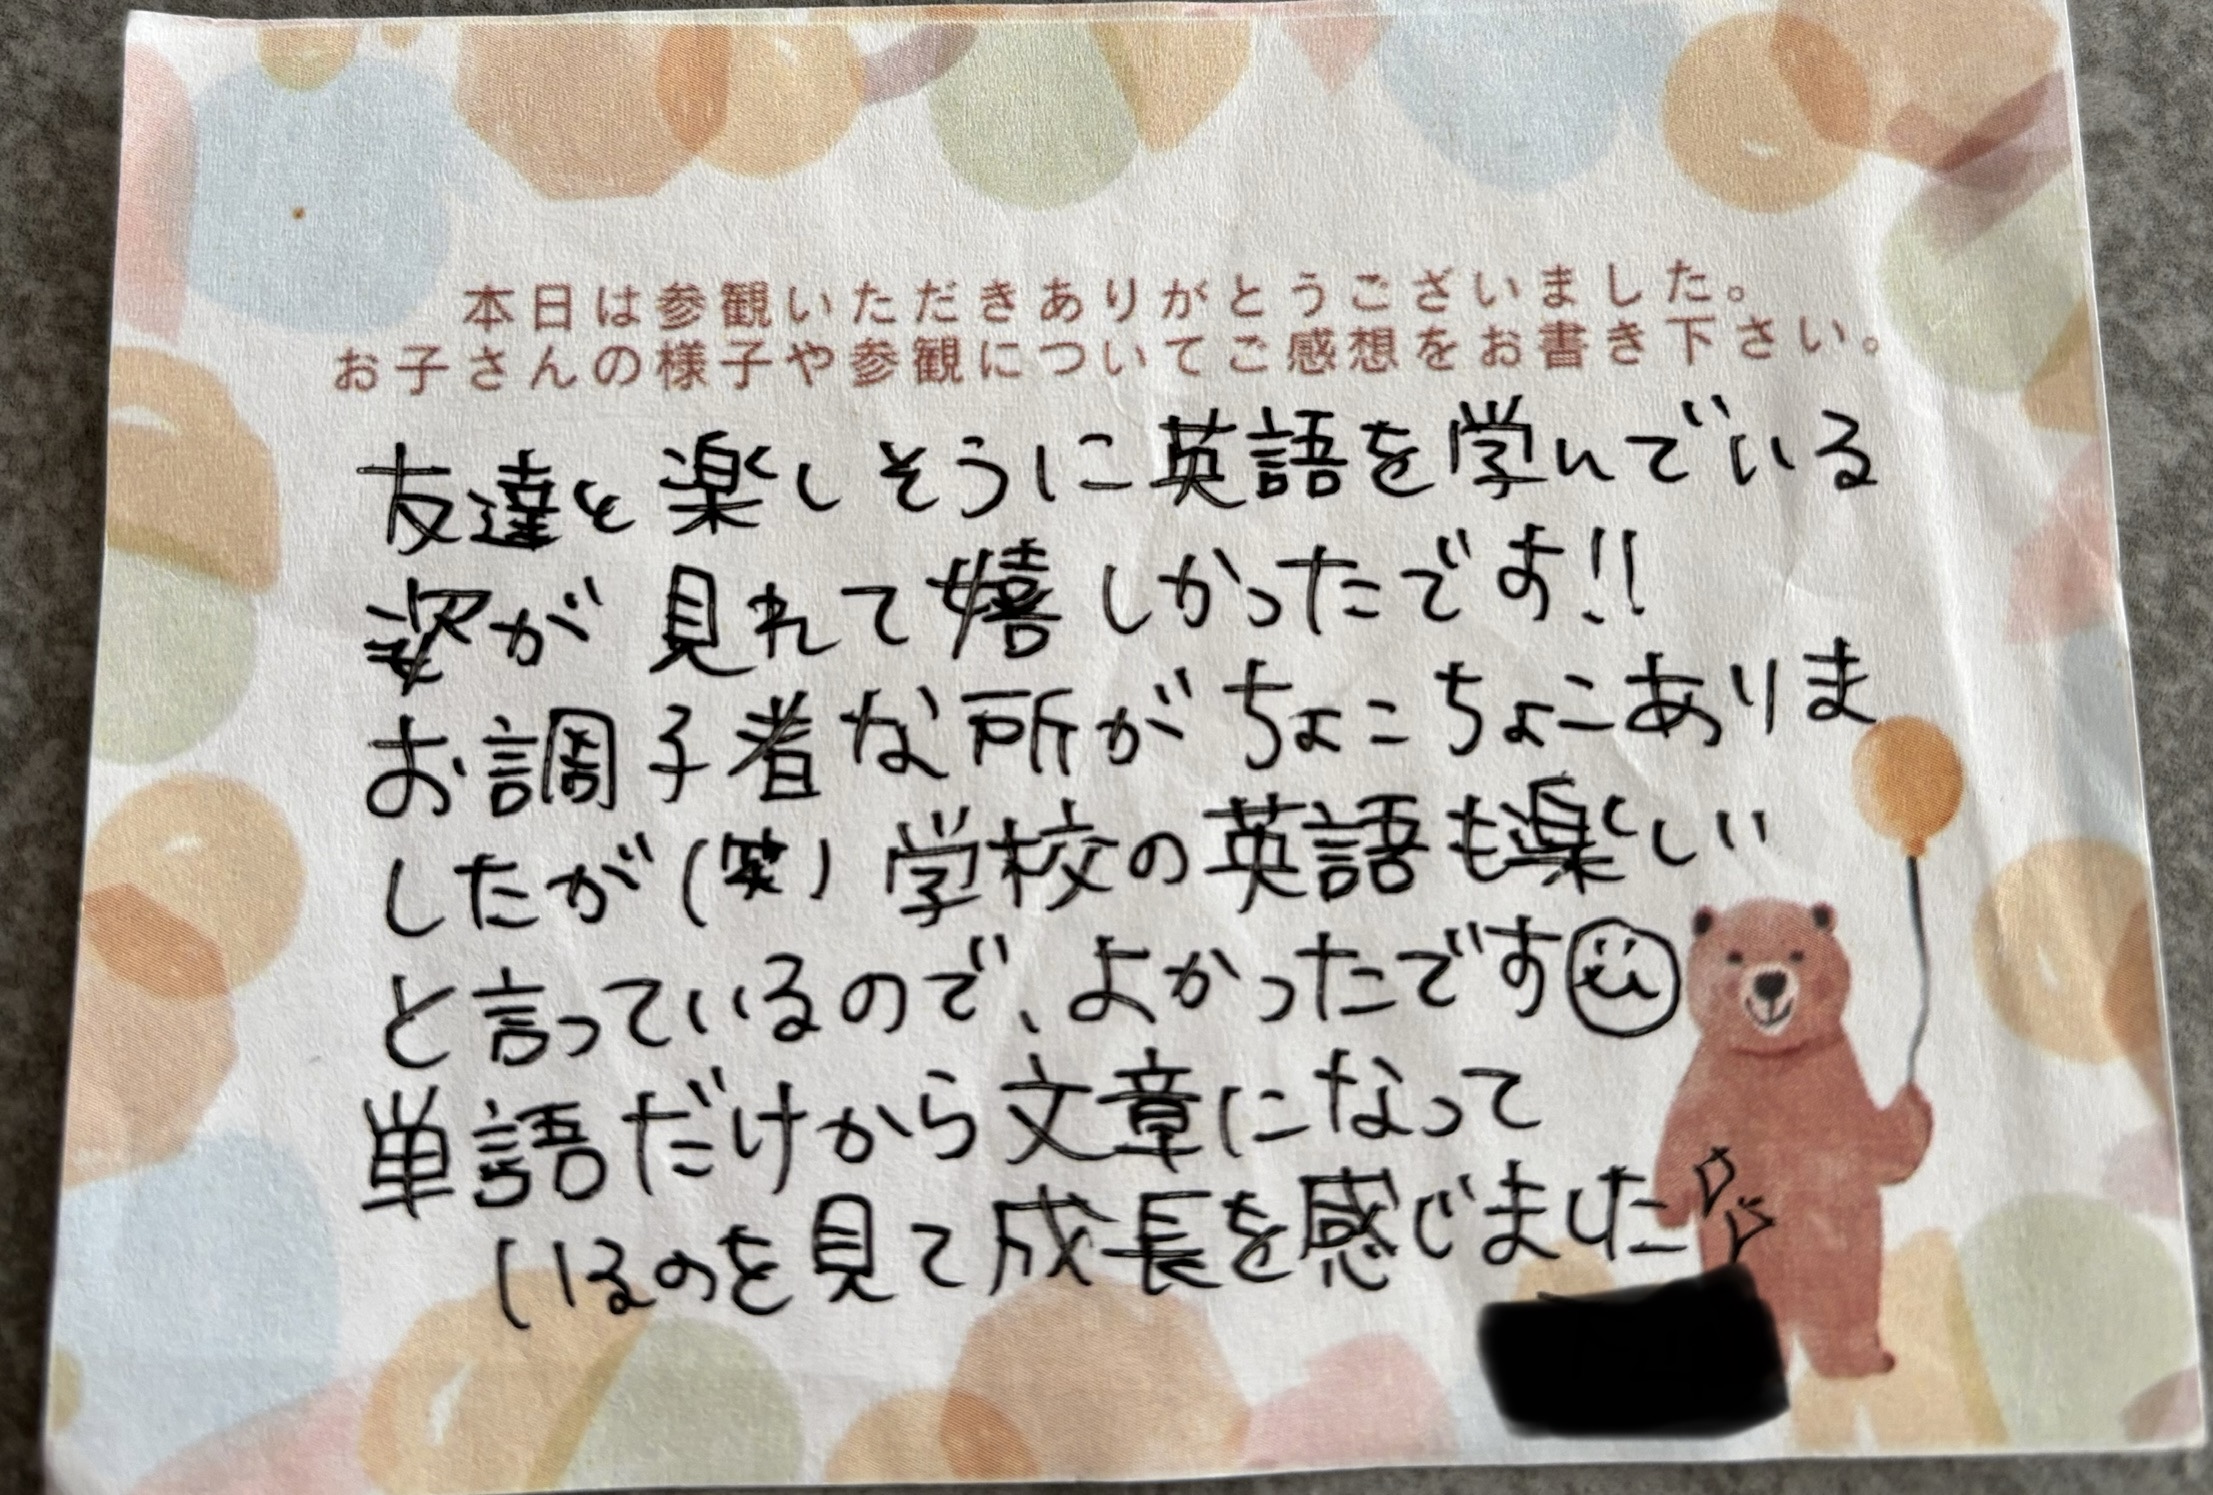 本日は参観いただきありがとうございました。
お子さんの様子や参観についてご感想をお書き下さい。
友達と楽しそうに英語を学んでいる
姿が見れて嬉しかったです!!
お調子者な所がちょこちょこありま
したが(笑)学校の英語も楽しい
と言っているので、よかったです
単語だけから文章になって
いるのを見て成長を感じました